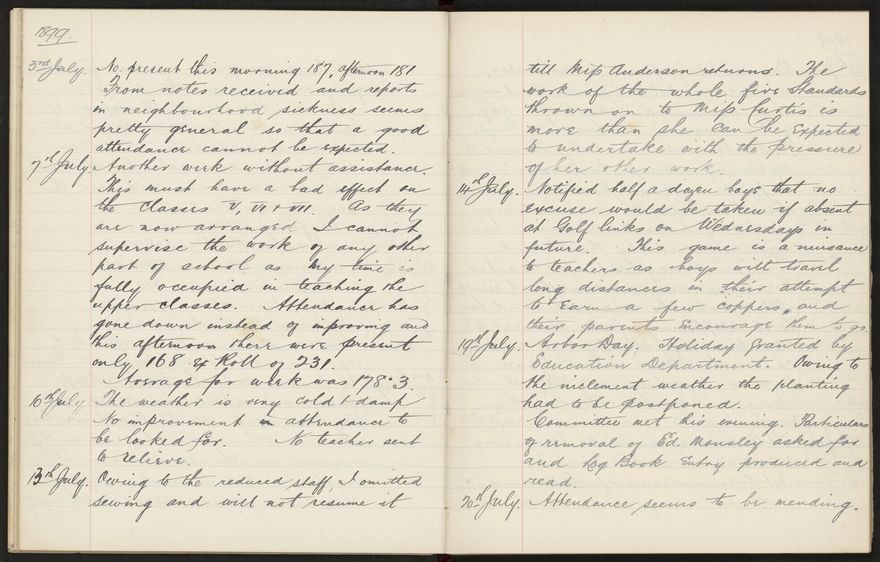 1899.
3rd July. No. present this morning 187, afternoon 181
From notes received and reports
in neighbourhood sickness seems
pretty general so that a good
attendance cannot be expected.
7th July. Another week without assistance.
This must have a bad effect on
the classes V, VI & VII. As they
are now arranged I cannot
supervise the work of any other
part of school as my time is
fully occupied in teaching the
upper classes. Attendance has
gone down instead of improving and
this afternoon there were present
only 168 ex Roll of 231.
Average for week was 178·3.
10th July The weather is very cold & damp
No improvement in attendance to
be looked for. No teacher sent
to relieve.
13th July. Owing to the reduced staff, I omitted
sewing and will not resume it
till Miss Anderson returns. The
work of the whole five Standards
thrown on to Miss Curtis is
more than she can be expected
to undertake with the pressure
of her other work.
14th July. Notified half a dozen boys that no
excuse would be taken if absent
at Golf links on Wednesdays in
future. This game is a nuisance
to teachers as boys will travel
long distances in their attempt
to earn a few coppers, and
their parents encourage them to go.
19th July. Arbor Day. Holiday granted by
Education Department. Owing to
the inclement weather the planting
had to be postponed.
Committee met this evening. Particulars
of removal of Ed. Mousley asked for
and Log Book entry produced and
read.
20th July. Attendance seems to be mending.